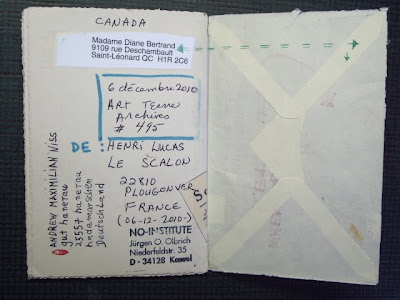 CANADA
Madame Diane Bertrand
9109 rue Deschambault
Saint-Léonard QC H1R 2C6
6 décembre 2010
ART Terre
Archives
# 495
DE: HENRI LUCAS
LE SCALON
22810
PLOUGONVER
FRANCE
(06-12-2010-)
NO-INSTITUTE
Jürgen O. Olbrich
Niederfeldstr. 35
D - 34128 Kassel
ANDREW MAXIMILIAN Niss
gut hanerau
25557 hanerau
hadamarschen
Deutschland